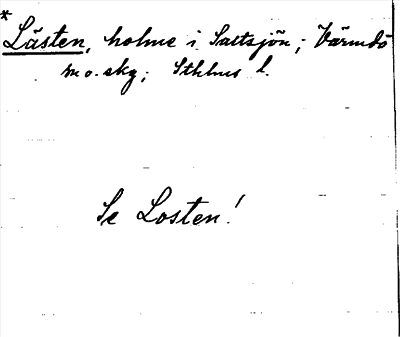 *
Lästen, holme i Saltsjön; Värmdö
m o. skg; Sthlms l.
Se Losten!